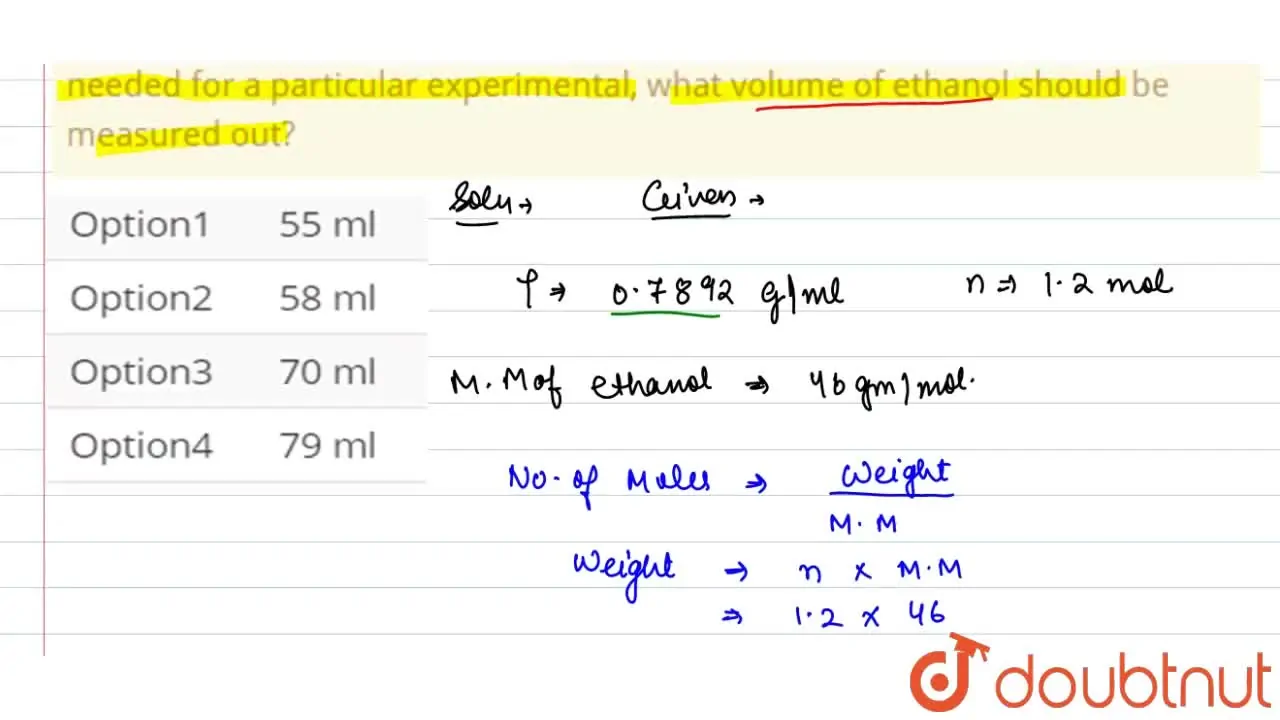 needed for a particular experimental, what volume of ethanol should be
measured out?
Option1 55 ml
Option2 58 ml
Option3 70 ml
Option4 79 ml
Soln → Given →
ρ ⇒ 0.7892 g/ml n ⇒ 1.2 mol
M.M of ethanol ⇒ 46 gm/mol.
No. of Moles ⇒ Weight
M.M
Weight → n x M.M
⇒ 1.2 x 46
doubtnut